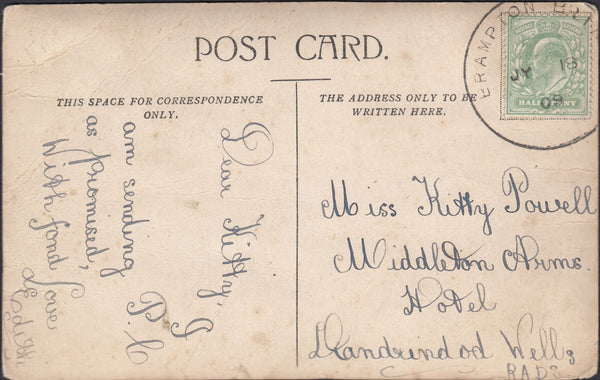 POST CARD.
THIS SPACE FOR CORRESPONDENCE
ONLY.
THE ADDRESS ONLY TO BE
WRITTEN HERE.
Dear Kitty, I
am sending P.C
as promised,
With fond love
Edith
Miss Kitty Powell
Middleton Arms.
Hotel
Llandrindod Wells
RADS.
BRAMPTON BR
JY 18
09
HALFPENNY